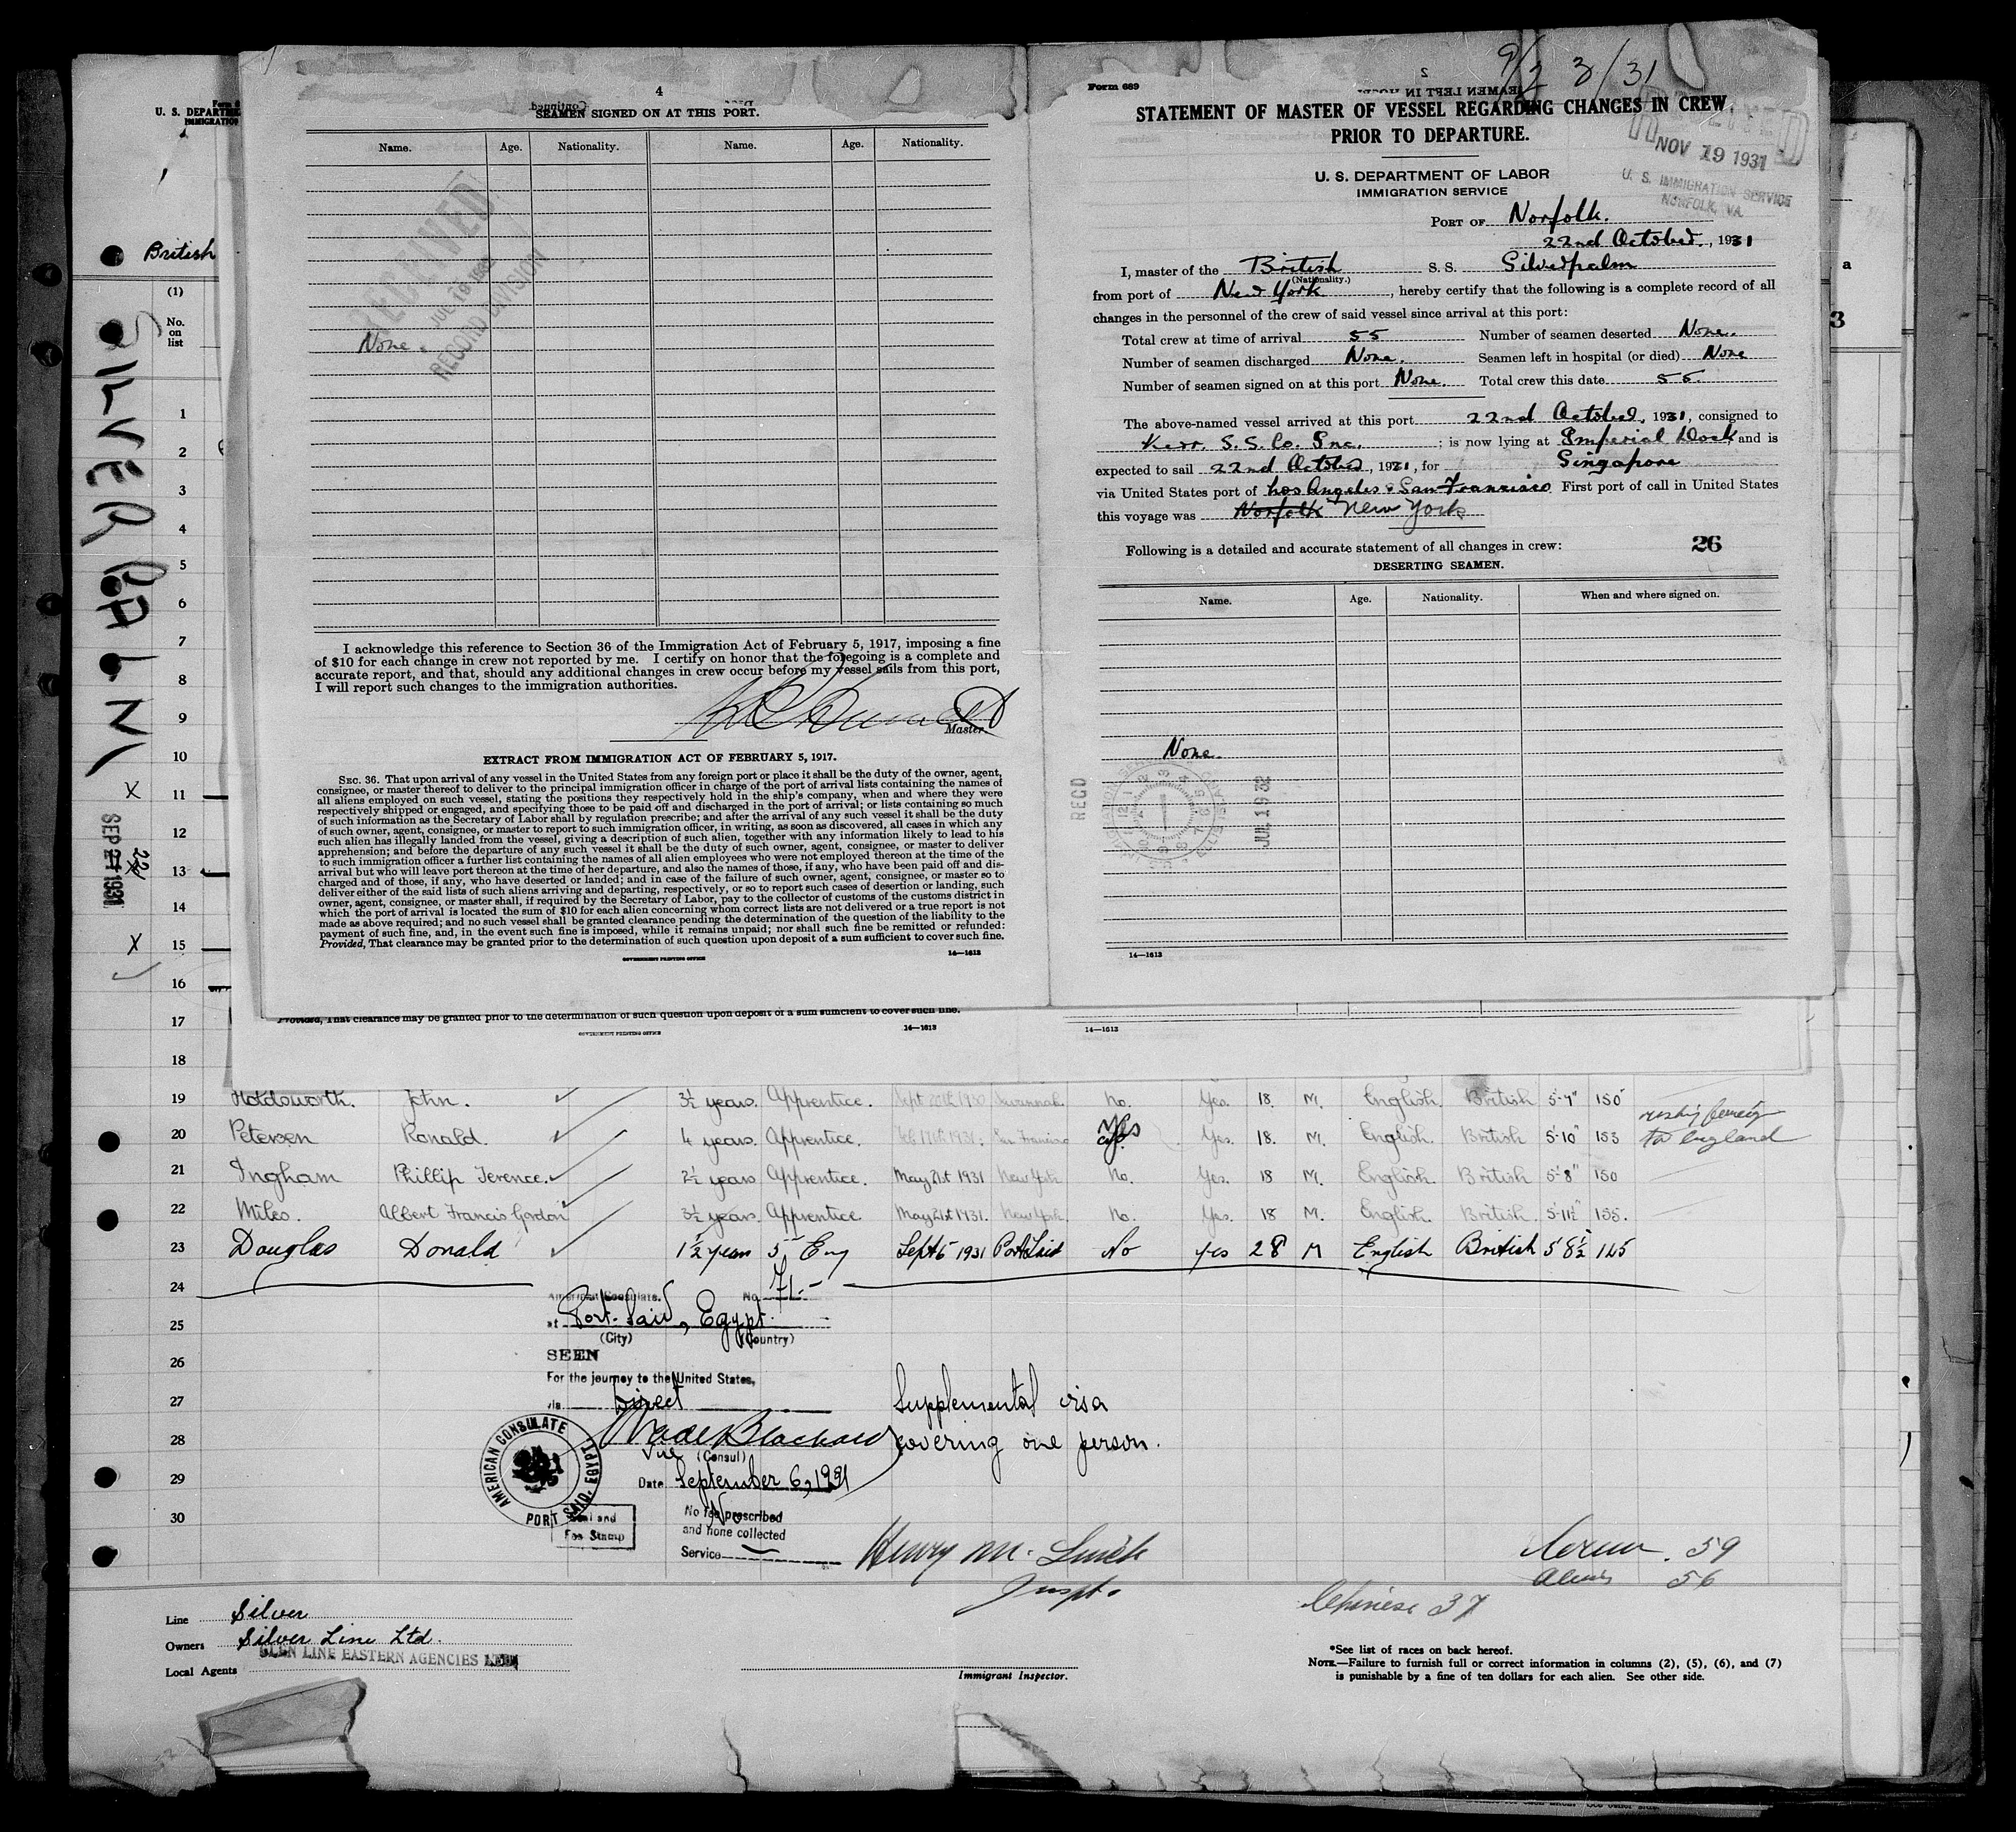 4
SEAMEN SIGNED ON AT THIS PORT.
Name. Age. Nationality. Name. Age. Nationality.
RECEIVED
JUL 19 1932
RECORD DIVISION
None.
I acknowledge this reference to Section 36 of the Immigration Act of February 5, 1917, imposing a fine
of $10 for each change in crew not reported by me. I certify on honor that the foregoing is a complete and
accurate report, and that, should any additional changes in crew occur before my vessel sails from this port,
I will report such changes to the immigration authorities.
Master.
EXTRACT FROM IMMIGRATION ACT OF FEBRUARY 5, 1917.
SEC. 36. That upon arrival of any vessel in the United States from any foreign port or place it shall be the duty of the owner, agent,
consignee, or master thereof to deliver to the principal immigration officer in charge of the port of arrival lists containing the names of
all aliens employed on such vessel, stating the positions they respectively hold in the ship's company, when and where they were
respectively shipped or engaged, and specifying those to be paid off and discharged in the port of arrival; or lists containing so much
of such information as the Secretary of Labor shall by regulation prescribe; and after the arrival of any such vessel it shall be the duty
of such owner, agent, consignee, or master to report to such immigration officer, in writing, as soon as discovered, all cases in which any
such alien has illegally landed from the vessel, giving a description of such alien, together with any information likely to lead to his
apprehension; and before the departure of any such vessel it shall be the duty of such owner, agent, consignee, or master to deliver
to such immigration officer a further list containing the names of all alien employees who were not employed thereon at the time of the
arrival but who will leave port thereon at the time of her departure, and also the names of those, if any, who have been paid off and dis-
charged and of those, if any, who have deserted or landed; and in case of the failure of such owner, agent, consignee, or master so to
deliver either of the said lists of such aliens arriving and departing, respectively, or so to report such cases of desertion or landing, such
owner, agent, consignee, or master shall, if required by the Secretary of Labor, pay to the collector of customs of the customs district in
which the port of arrival is located the sum of $10 for each alien concerning whom correct lists are not delivered or a true report is not
made as above required; and no such vessel shall be granted clearance pending the determination of the question of the liability to the
payment of such fine, and, in the event such fine is imposed, while it remains unpaid; nor shall such fine be remitted or refunded:
Provided, That clearance may be granted prior to the determination of such question upon deposit of a sum sufficient to cover such fine.
GOVERNMENT PRINTING OFFICE 14—1613
Form 689
STATEMENT OF MASTER OF VESSEL REGARDING CHANGES IN CREW
PRIOR TO DEPARTURE.
NOV 19 1931
U. S. IMMIGRATION SERVICE
NORFOLK, VA.
U. S. DEPARTMENT OF LABOR
IMMIGRATION SERVICE
PORT OF Norfolk.
22nd October, 1931
I, master of the British S. S. Silverpalm
(Nationality.)
from port of New York, hereby certify that the following is a complete record of all
changes in the personnel of the crew of said vessel since arrival at this port:
Total crew at time of arrival 55 Number of seamen deserted None.
Number of seamen discharged None. Seamen left in hospital (or died) None
Number of seamen signed on at this port None. Total crew this date 55.
The above-named vessel arrived at this port 22nd October, 1931, consigned to
Kerr S.S. Co. Inc. ; is now lying at Imperial Dock and is
expected to sail 22nd October, 1931, for Singapore
via United States port of Los Angeles & San Francisco First port of call in United States
this voyage was Norfolk New York
Following is a detailed and accurate statement of all changes in crew: 26
DESERTING SEAMEN.
Name. Age. Nationality. When and where signed on.
None.
RECD
JUL 19 32
14—1613
U. S. DEPARTME
IMMIGRATION
British
(1)
No. on list
SILVERPALM
SEP 1931
22
1
2
3
4
5
6
7
8
9
10
11
12
13
14
15
16
17
18
Provided, That clearance may be granted prior to the determination of such question upon deposit of a sum sufficient to cover such fine.
GOVERNMENT PRINTING OFFICE 14—1613 14—1613
19 Holdsworth. John. 3½ years. Apprentice. Sept 20th 1930 Savannah. No. Yes. 18. M. English. British 5-7" 150
20 Petersen Ronald. 4 years. Apprentice. Feb 17th 1931. San Francisco Yes Yes. 18. M. English. British 5-10" 153
to England
21 Ingham Phillip Terence. 2½ years Apprentice. May 21st 1931 New York No. Yes. 18 M. English. British 5-8" 150
22 Miles. Albert Francis Gordon 3½ years. Apprentice. May 21st 1931. New York. No. Yes. 18 M. English. British. 5-11½" 155.
23 Douglas Donald 1½ year 5 Eng Sept 6 1931 Port Said No Yes 28 M English British 5 8½ 145
24
25
26
27
28
29
30
American Consulate. No. 71.-
at Port Said, Egypt.
(City) (Country)
SEEN
For the journey to the United States,
via Direct
Supplemental visa
covering one person.
Vice (Consul)
Date September 6, 1931
AMERICAN CONSULATE PORT SAID, EGYPT.
Seal and
Fee Stamp
No fee prescribed
and none collected
Service
Inspt.
59
Aliens 56
Chinese 37
Line Silver
Owners Silver Line Ltd.
Local Agents GLEN LINE EASTERN AGENCIES LTD
Immigrant Inspector.
*See list of races on back hereof.
NOTE.—Failure to furnish full or correct information in columns (2), (5), (6), and (7)
is punishable by a fine of ten dollars for each alien. See other side.